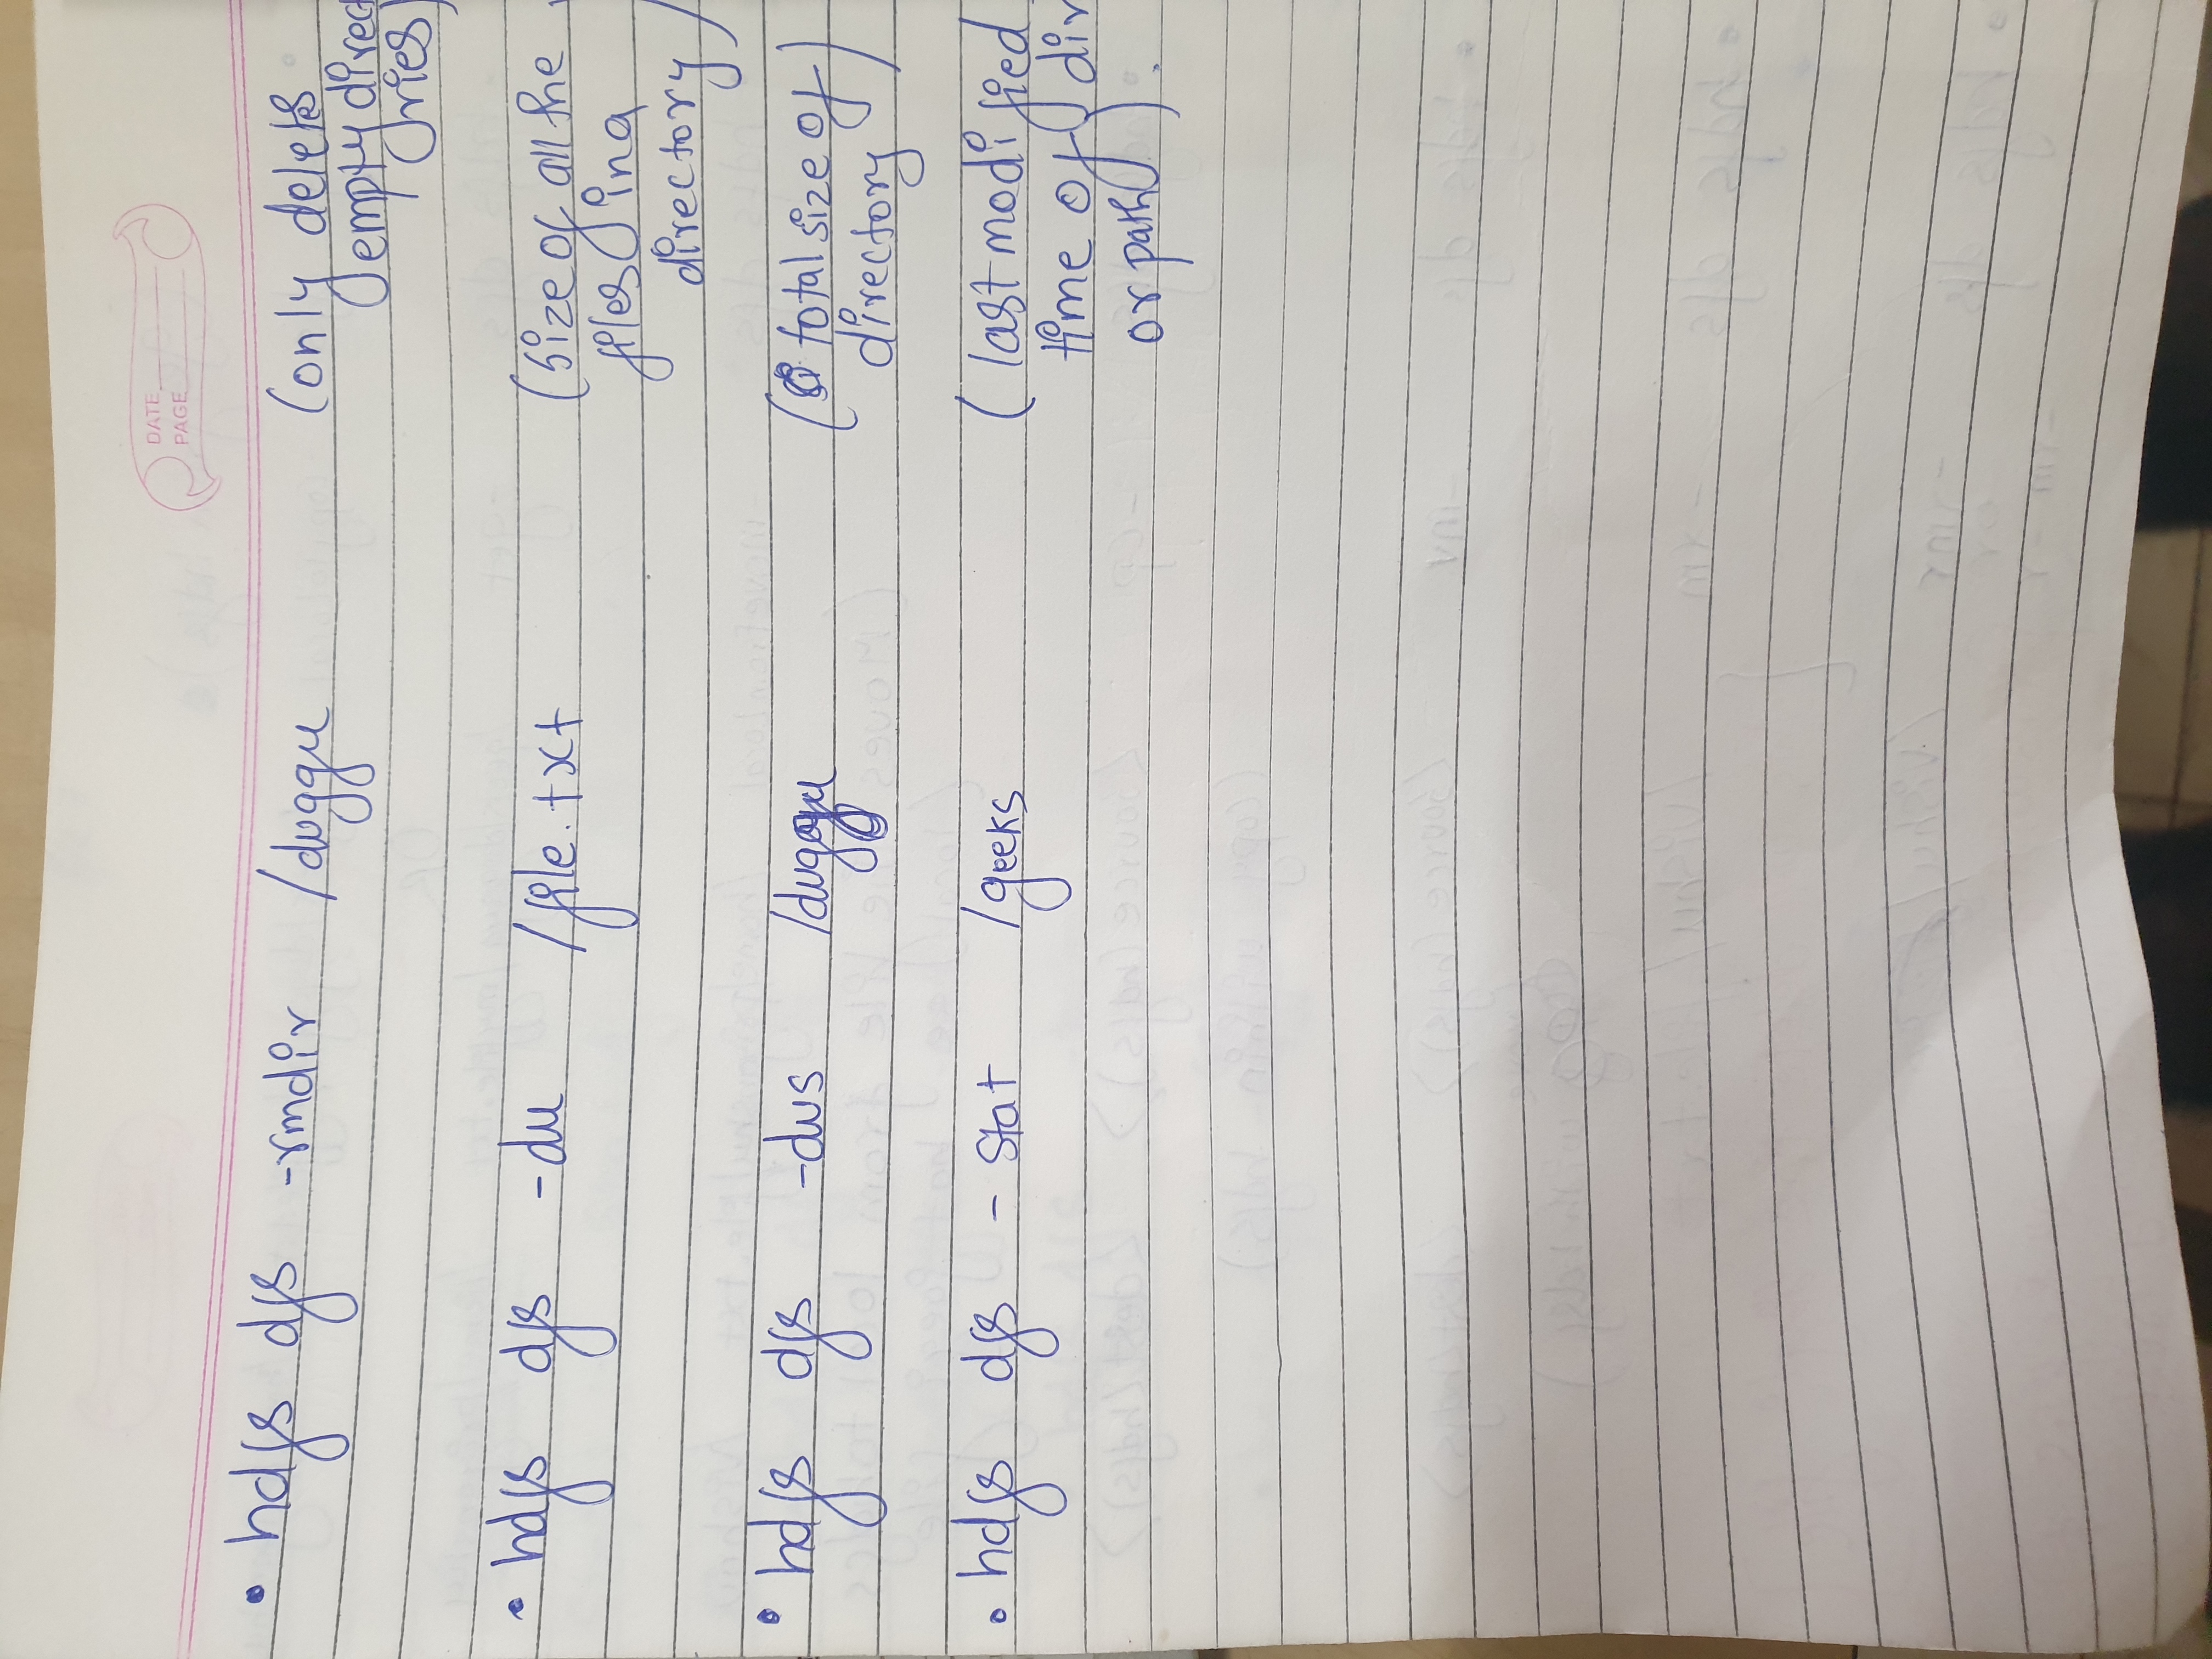 DATE
PAGE
• hdfs dfs -rmdir /duggu (only deletes
empty direct
ries)
• hdfs dfs -du /file.txt (size of all the
files in a
directory)
• hdfs dfs -dus /duggu (total size of
directory)
• hdfs dfs - stat /geeks (last modified
time of dir
or path).